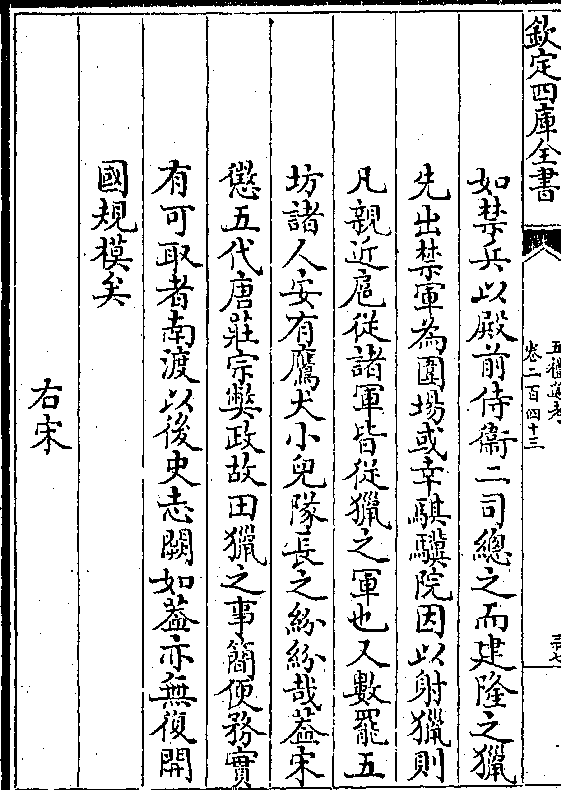 欽定四庫全書
五禮通考
卷二百四十三
三十七
如禁兵以殿前侍衛二司總之而建隆之獵
先出禁軍為圍場或幸騏驥院因以射獵則
凡親近扈從諸軍皆從獵之軍也又數罷五
坊諸人安有鷹犬小兒隊長之紛紛哉葢宋
懲五代唐莊宗弊政故田獵之事簡便務實
有可取者南渡以後史志闕如葢亦無復開
國規模矣
右宋